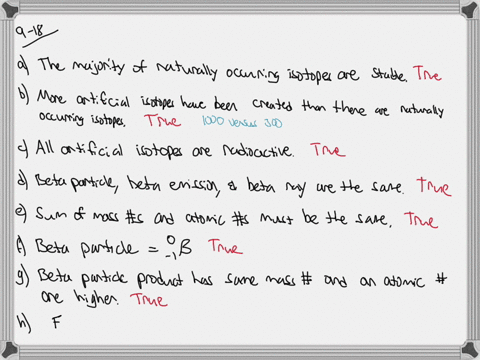 9-18
a) The majority of naturally occurring isotopes are stable. True
b) More artificial isotopes have been created than there are naturally
occurring isotopes. True 1000 versus 300
c) All artificial isotopes are radioactive. True
d) Beta particle, beta emission, & beta ray are the same. True
e) Sum of mass #s and atomic #s must be the same. True
f) Beta particle = ⁰₋₁β True
g) Beta particle product has same mass # and an atomic #
one higher. True
h) F